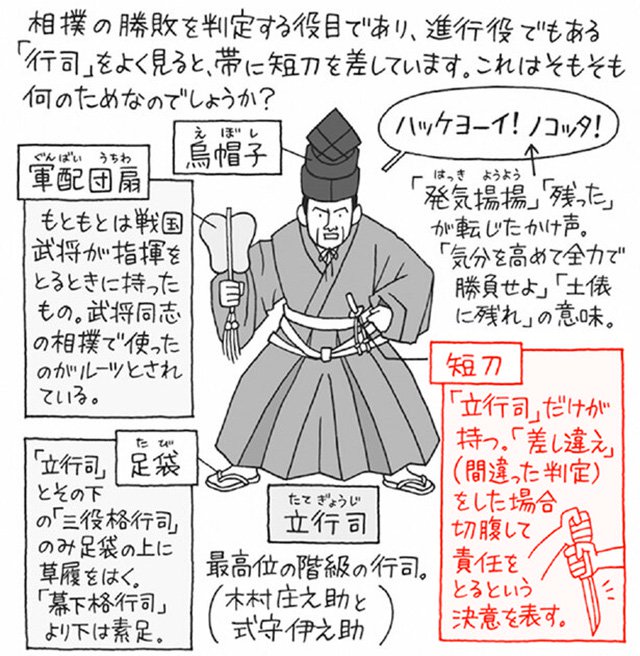 相撲の勝敗を判定する役目であり、進行役でもある
「行司」をよく見ると、帯に短刀を差しています。これはそもそも
何のためなのでしょうか？
えぼし
烏帽子
ハッケヨーイ！ノコッタ！
はっきようよう
「発気揚揚」「残った」
が転じたかけ声。
「気分を高めて全力で
勝負せよ」「土俵
に残れ」の意味。
ぐんばいうちわ
軍配団扇
もともとは戦国
武将が指揮を
とるときに持った
もの。武将同志
の相撲で使った
のがルーツとされ
ている。
短刀
「立行司」だけが
持つ。「差し違え」
（間違った判定）
をした場合
切腹して
責任を
とるという
決意を表す。
たび
足袋
「立行司」
とその下
の「三役格行司」
のみ足袋の上に
草履をはく。
「幕下格行司」
より下は素足。
たてぎょうじ
立行司
最高位の階級の行司。
（木村庄之助と
式守伊之助）